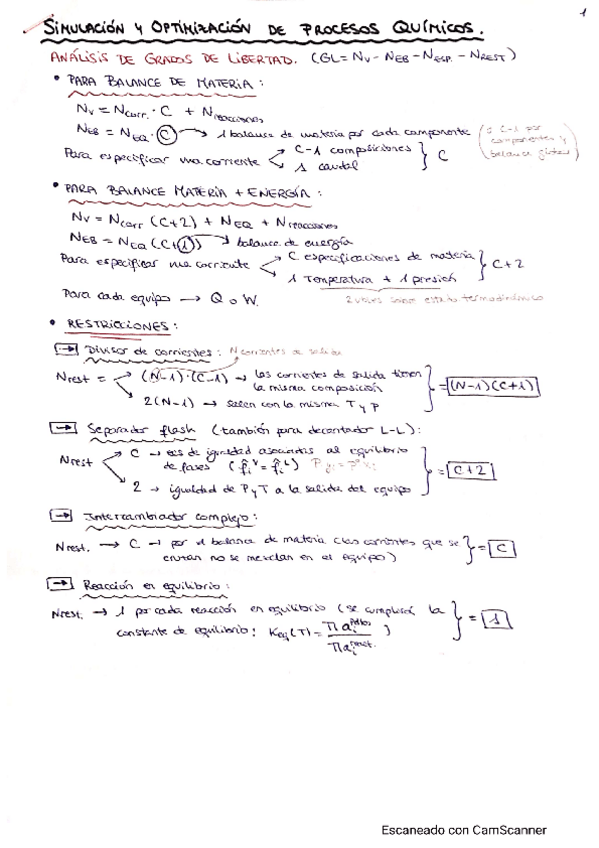 1
SIMULACIÓN Y OPTIMIZACIÓN DE PROCESOS QUÍMICOS.
ANÁLISIS DE GRADOS DE LIBERTAD. (GL = Nv - NEB - NESP. - NREST)
• PARA BALANCE DE MATERIA:
Nv = Ncorr. · C + Nreacciones
NEB = NEQ · C → 1 balance de materia por cada componente (o C-1 por componentes y balance global)
Para especificar una corriente C-1 composiciones
1 caudal } C
• PARA BALANCE MATERIA + ENERGÍA:
Nv = Ncorr (C+2) + NEQ + Nreacciones
NEB = NEQ (C+1) → balance de energía
Para especificar una corriente C especificaciones de materia
1 Temperatura + 1 presión } C+2
Para cada equipo → Q o W. 2 vbles sobre estado termodinámico
• RESTRICCIONES:
→ Divisor de corrientes: N corrientes de salida
Nrest = (N-1)·(C-1) → las corrientes de salida tienen
la misma composición
2(N-1) → salen con la misma T y P } = (N-1)(C+1)
→ Separador flash (también para decantador L-L):
Nrest C → ecs de igualdad asociadas al equilibrio
de fases (f̂iV = f̂iL)
2 → igualdad de P y T a la salida del equipo } = C+2
→ Intercambiador complejo:
Nrest. → C → por el balance de materia (las corrientes que se
cruzan no se mezclan en el equipo) } = C
→ Reacción en equilibrio:
Nrest. → 1 por cada reacción en equilibrio (se cumplirá la
constante de equilibrio: Keq(T) = Πai / Πai ) } = 1
Escaneado con CamScanner